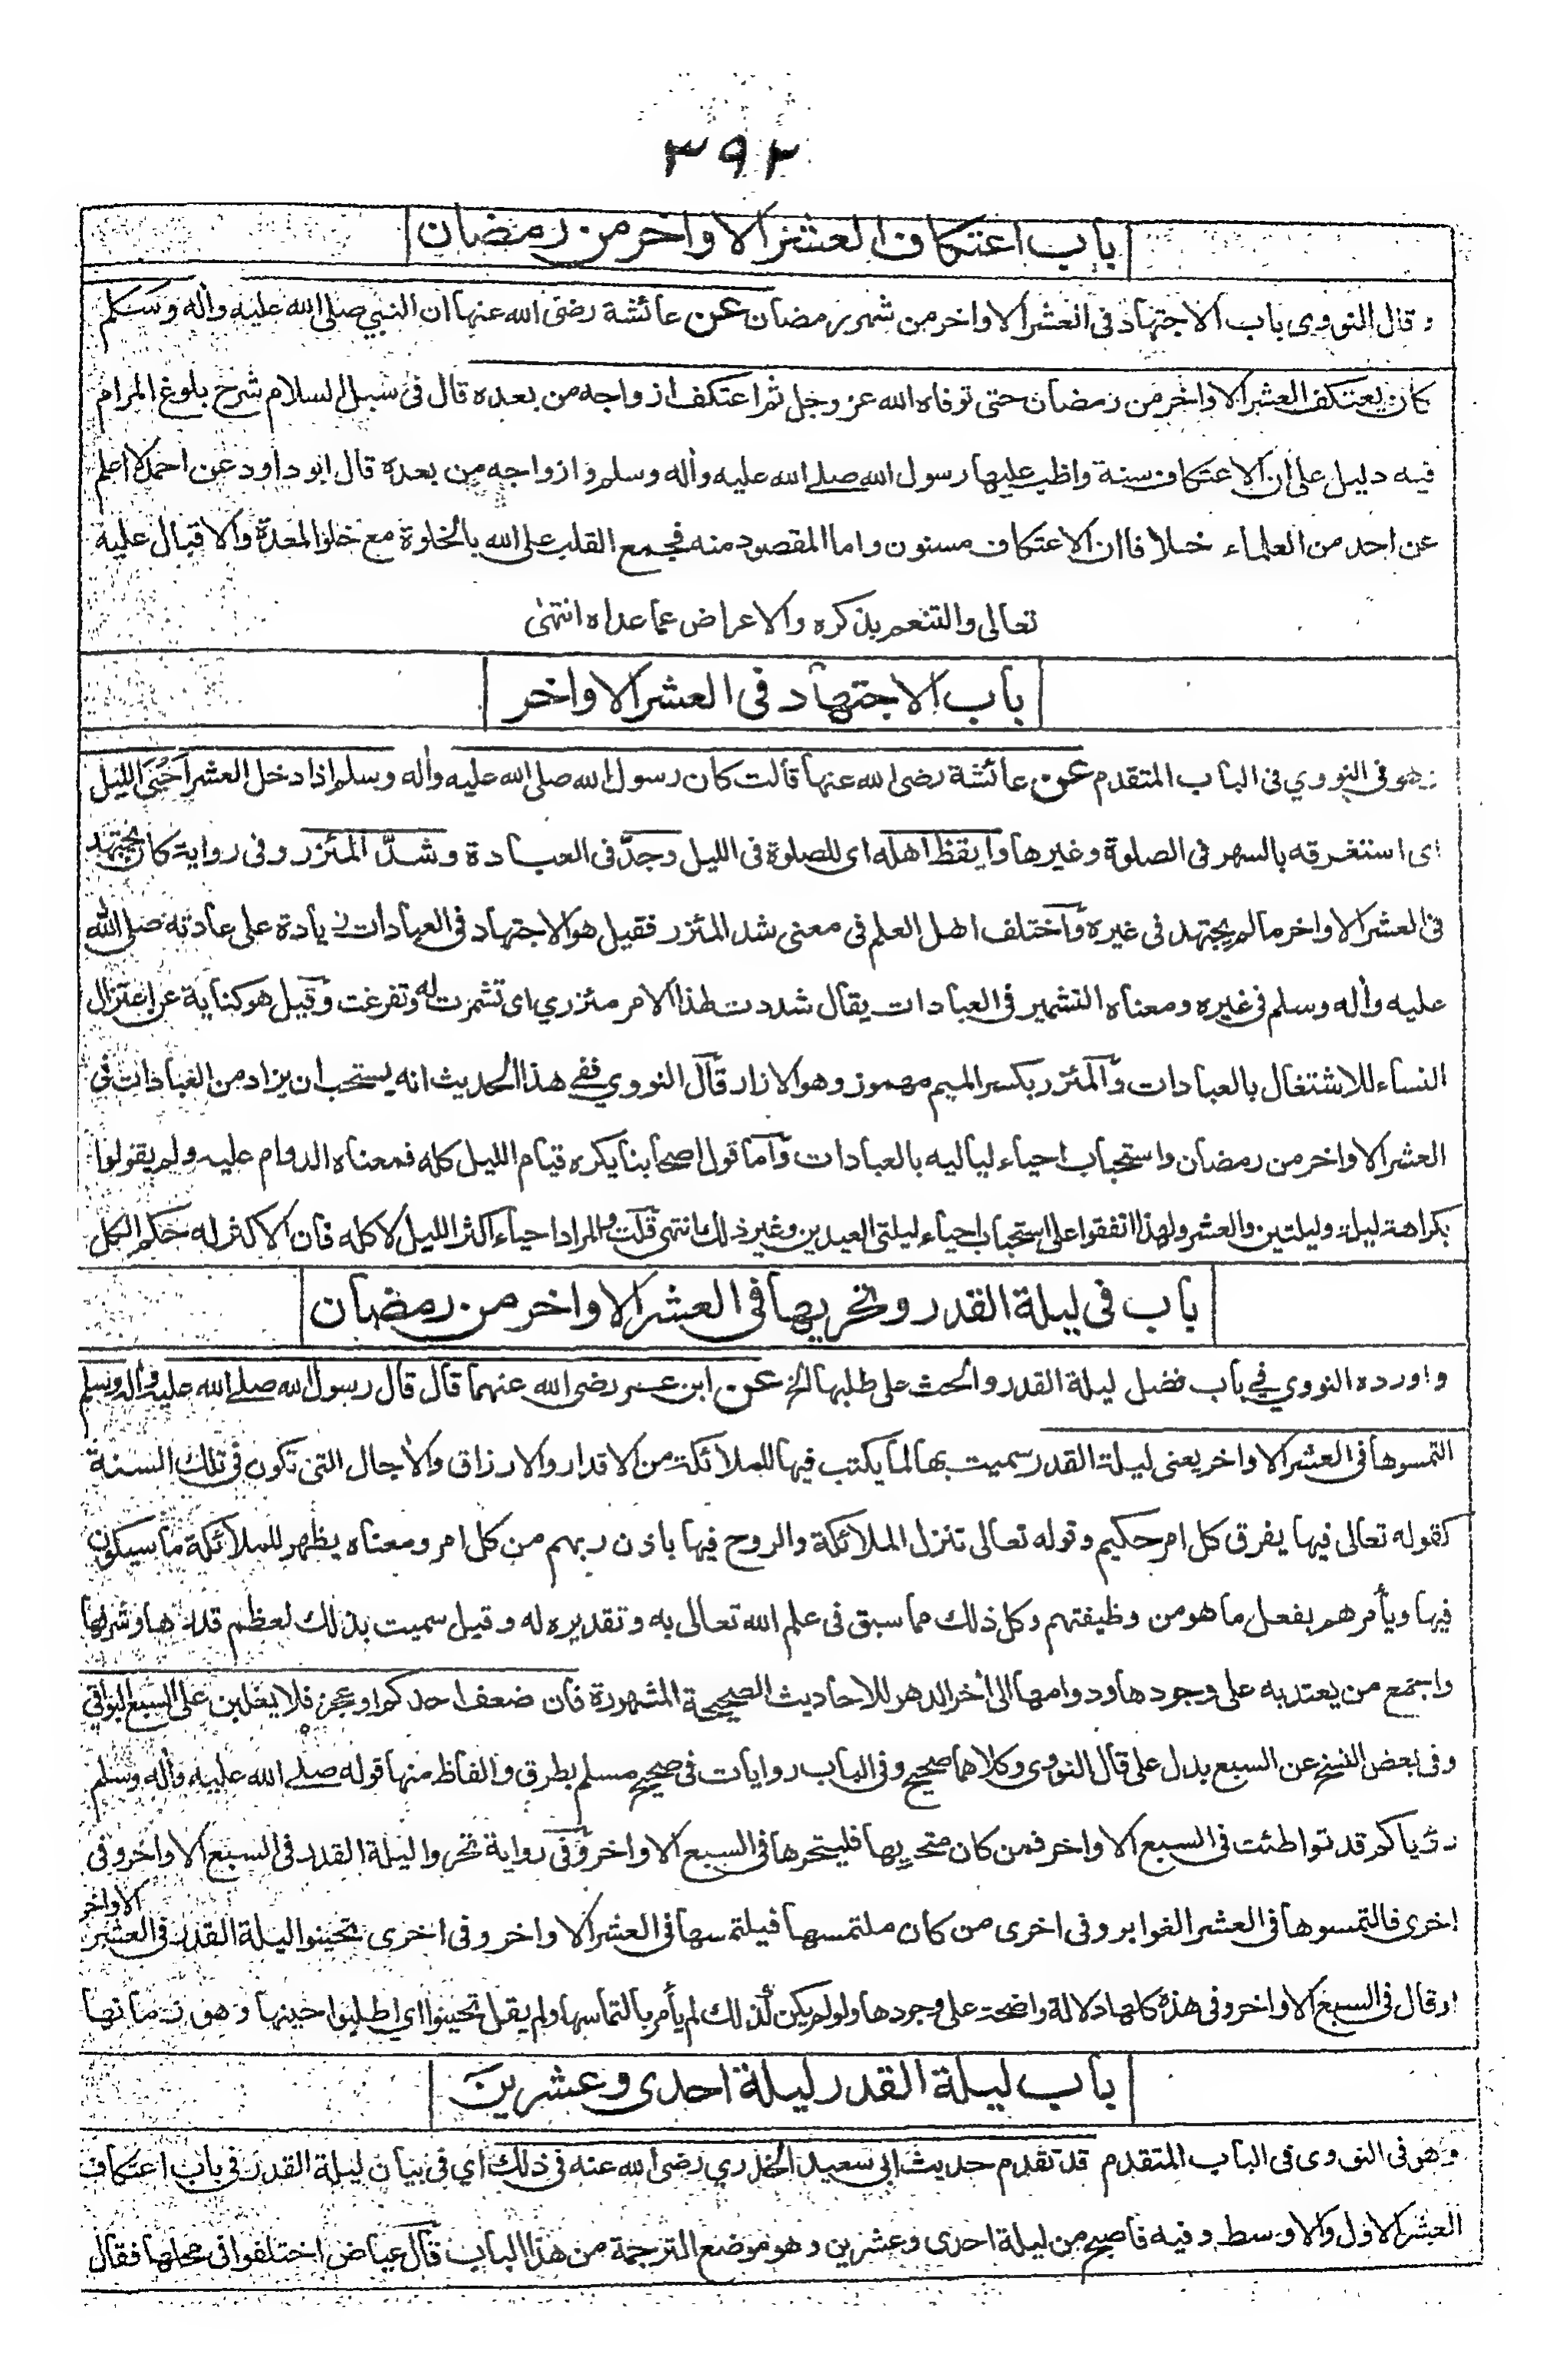 ٣٩٢
باب اعتكاف العشر الاواخر من رمضان
وقال النووى باب الاجتهاد فى العشر الاواخر من شهر رمضان عن عائشة رضى الله عنها ان النبى صلى الله عليه واٰله وسلم
كان يعتكف العشر الاواخر من رمضان حتى توفاه الله عز وجل ثم اعتكف ازواجه من بعده قال فى سبل السلام شرح بلوغ المرام
فيه دليل على ان الاعتكاف سنة واظب عليها رسول الله صلے الله عليه واٰله وسلم وازواجه من بعده قال ابو داود عن احمد لا اعلم
عن احد من العلماء خلافا ان الاعتكاف مسنون واما المقصود منه فجمع القلب على الله بالخلوة مع خلو المعدة والاقبال عليه
تعالى والتنعم بذكره والاعراض عما عداه انتهى
باب الاجتهاد فى العشر الاواخر
وهو فى النووي فى الباب المتقدم عن عائشة رضى الله عنها قالت كان رسول الله صلى الله عليه واٰله وسلم اذا دخل العشر اَحْيَى الليل
اى استغرقه بالسهر فى الصلوة وغيرها وايقظ اهله اى للصلوة فى الليل وجدّ فى العبادة وشدّ المئزر وفى رواية كان يجتهد
فى العشر الاواخر ما لم يجتهد فى غيره وآختلف اهل العلم فى معنى شد المئزر فقيل هو الاجتهاد فى العبادات زيادة على عادته صلى الله
عليه واٰله وسلم فى غيره ومعناه التشمير فى العبادات يقال شددت لهذا الامر مئزري اى تشمرت له وتفرغت وقيل هو كناية عن اعتزال
النساء للاشتغال بالعبادات وآلمئزر بكسر الميم مهموز وهو الازار قآل النووي ففے هذا الحديث انه يستحب ان يزاد من العبادات فى
العشر الاواخر من رمضان واستحباب احياء لياليه بالعبادات وآما قول اصحابنا يكره قيام الليل كله فمعناه الدوام عليه ولم يقولوا
بكراهة ليلة وليلتين والعشر ولهذا اتفقوا على استحباب احياء ليلتى العيدين وغير ذلك انتهى قلت والمراد احياء اكثر الليل لا كله فان الاكثر له حكم الكل
باب فى ليلة القدر وتحريها فى العشر الاواخر من رمضان
واورده النووي فے باب فضل ليلة القدر والحث على طلبها الخ عن ابن عمر رضى الله عنهما قال قال رسول الله صلے الله عليه واٰله وسلم
التمسوها فى العشر الاواخر يعنى ليلة القدر سميت بها لما يكتب فيها للملائكة من الاقدار والارزاق والاٰجال التى تكون فى تلك السنة
كقوله تعالى فيها يفرق كل امر حكيم وقوله تعالى تنزل الملائكة والروح فيها باذن ربهم من كل امر ومعناه يظهر للملائكة ما سيكون
فيها ويأمرهم بفعل ما هو من وظيفتهم وكل ذلك مما سبق فى علم الله تعالى به وتقديره له وقيل سميت بذلك لعظم قدرها وشرفها
واجمع من يعتد به على وجودها ودوامها الى اٰخر الدهر للاحاديث الصحيحة المشهورة فان ضعف احدكم او عجز فلا يغلبن على السبع البواقي
وفى بعض النسخ عن السبع بدل على قال النووى وكلاهما صحيح وفى الباب روايات فى صحيح مسلم بطرق والفاظ منها قوله صلے الله عليه واٰله وسلم
رؤياكم قد تواطئت فى السبع الاواخر فمن كان متحريها فليتحرها فى السبع الاواخر وفى رواية تحروا ليلة القدر فى السبع الاواخر وفى
اخرى فالتمسوها فى العشر الغوابر وفى اخرى من كان ملتمسها فيلتمسها فى العشر الاواخر وفى اخرى تحينوا ليلة القدر فى العشر الاواخر
اوقال فى السبع الاواخر وفى هذه كلها دلالة واضحة على وجودها ولو لم يكن كذلك لم يأمر بالتماسها ولم يقل تحينوا اى اطلبوا حينها وهو زمانها
باب ليلة القدر ليلة احدى وعشرين
وهو فى النووى فى الباب المتقدم قد تقدم حديث ابى سعيد الخدري رضى الله عنه فى ذلك اي فى بيان ليلة القدر فى باب اعتكاف
العشر الاول والاوسط وفيه فاصبح من ليلة احدى وعشرين وهو موضع الترجمة من هذا الباب قآل عياض اختلفوا فى محلها فقال